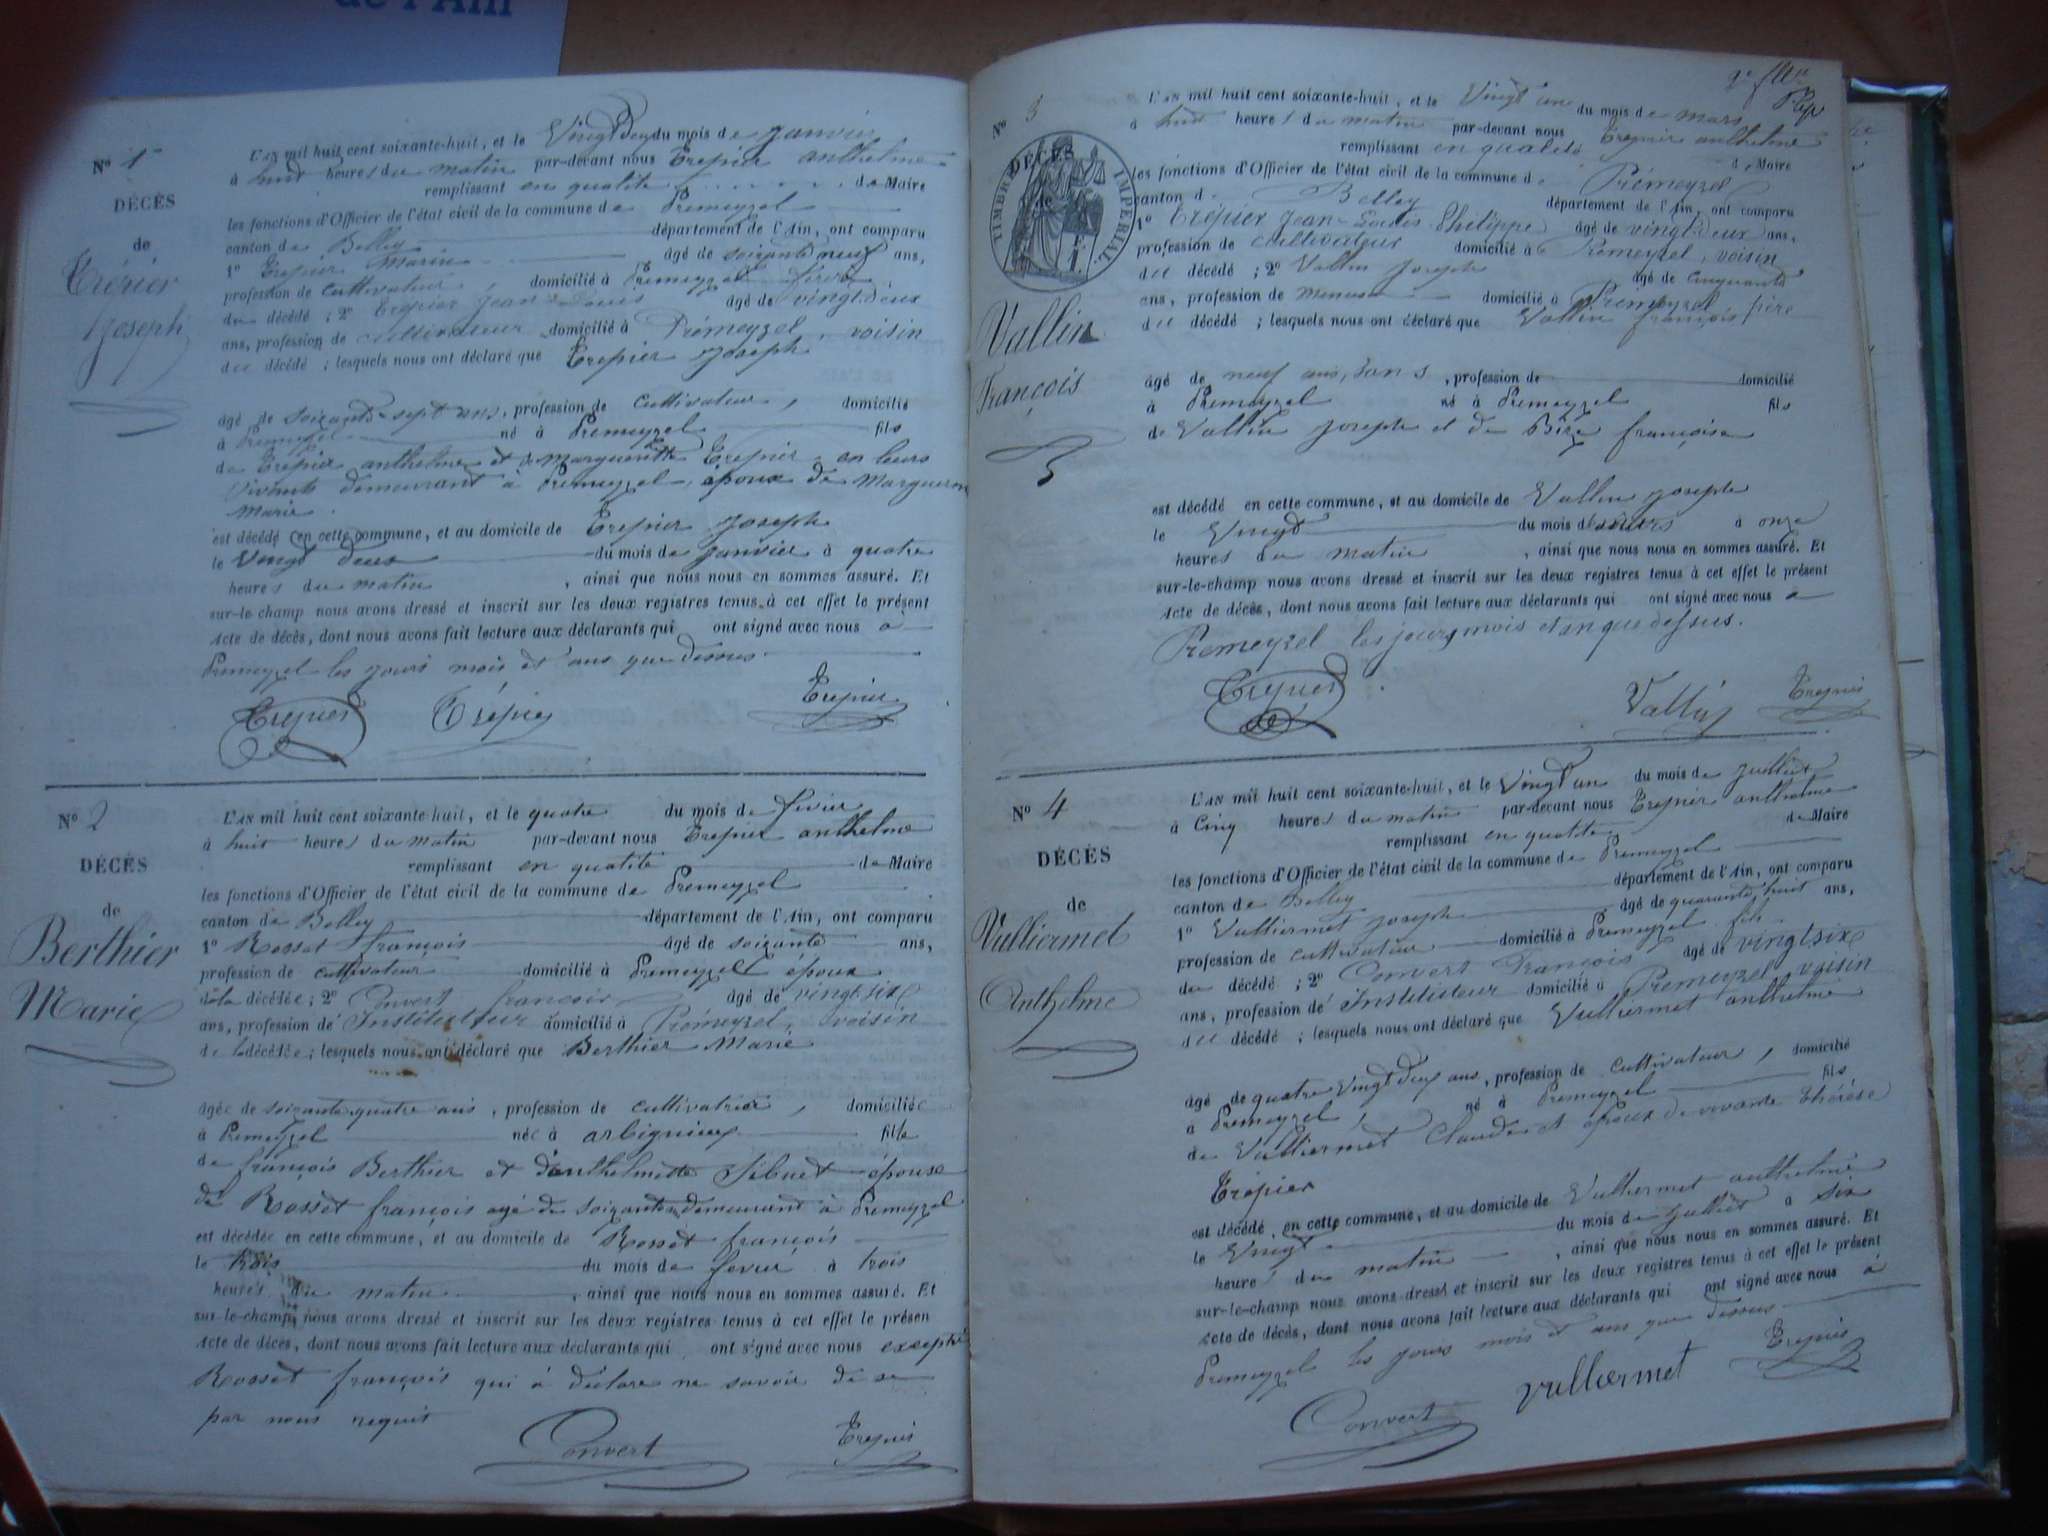 de l'Ain
N° 1er
DÉCÈS
de
Trépier
Joseph
L'AN mil huit cent soixante-huit, et le Vingt deux du mois de janvier
à huit heures du matin par-devant nous Trepier anthelme
remplissant en qualité de Maire
les fonctions d'Officier de l'état civil de la commune de Premeyzel
canton de Belley département de l'Ain, ont comparu
1° Trepier Marin âgé de soixante neuf ans,
profession de cultivateur, domicilié à Premeyzel frère
du décédé ; 2° Trepier Jean-Louis âgé de vingt deux
ans, profession de cultivateur domicilié à Prémeyzel, voisin
du décédé ; lesquels nous ont déclaré que Trepier Joseph
âgé de soixante-sept ans, profession de Cultivateur, domicilié
à Premeyzel né à Premeyzel fils
de Trepier anthelme et de Marguerite Trepier en leurs
vivants demeurant à Premeyzel, époux de Margueron
Marie.
est décédé en cette commune, et au domicile de Trepier Joseph
le Vingt deux du mois de Janvier à quatre
heures du matin, ainsi que nous nous en sommes assuré. Et
sur-le-champ nous avons dressé et inscrit sur les deux registres tenus à cet effet le présent
Acte de décès, dont nous avons fait lecture aux déclarants qui ont signé avec nous à
Premeyzel les jours mois et ans que dessus
Trepier Trépier Trepier
N° 2
DÉCÈS
de
Berthier
Marie
L'AN mil huit cent soixante-huit, et le quatre du mois de fevier
à huit heures du matin par-devant nous Trepier anthelme
remplissant en qualité de Maire
les fonctions d'Officier de l'état civil de la commune de Premeyzel
canton de Belley département de l'Ain, ont comparu
1° Rosset françois âgé de soixante ans,
profession de cultivateur domicilié à Premeyzel époux
de la décédée ; 2° Convert francois âgé de vingt six
ans, profession de Instituteur domicilié à Prémeyzel, voisin
de la décédée ; lesquels nous ont déclaré que Berthier Marie
âgée de soixante quatre ans, profession de cultivatrice, domiciliée
à Premeyzel née à arbignieux fille
de françois Berthier et d'anthelmette Sibuet épouse
de Rosset françois agé de soixante demeurant à Premeyzel
est décédée en cette commune, et au domicile de Rosset françois
le trois du mois de fevier à trois
heures du matin, ainsi que nous nous en sommes assuré. Et
sur-le-champ nous avons dressé et inscrit sur les deux registres tenus à cet effet le présen
Acte de décès, dont nous avons fait lecture aux déclarants qui ont signé avec nous excepté
Rosset françois qui à déclare ne savoir de ce
par nous requit
Convert Trepier
N° 3
DÉCÈS
de
TIMBRE IMPÉRIAL
Vallin
François
L'AN mil huit cent soixante-huit, et le Vingt un du mois de mars
à huit heures du matin par-devant nous Trepier anthelme
remplissant en qualité de Maire
les fonctions d'Officier de l'état civil de la commune de Prémeyzel
canton de Belley département de l'Ain, ont comparu
1° Trépier Jean-Louis Philippe âgé de vingt deux ans,
profession de cultivateur domicilié à Prémeyzel, voisin
du décédé ; 2° Vallin Joseph âgé de cinquante
ans, profession de domicilié à Premeyzel père
du décédé ; lesquels nous ont déclaré que Vallin françois
âgé de neuf ans, sans, profession de domicilié
à Premeyzel né à Premeyzel fils
de Vallin Joseph et de françoise
est décédé en cette commune, et au domicile de Vallin Joseph
le Vingt du mois de mars à onze
heures du matin, ainsi que nous nous en sommes assuré. Et
sur-le-champ nous avons dressé et inscrit sur les deux registres tenus à cet effet le présent
Acte de décès, dont nous avons fait lecture aux déclarants qui ont signé avec nous a
Premeyzel les jours mois et an que dessus.
Trepier Vallin Trepier
N° 4
DÉCÈS
de
Vulliermet
Anthelme
L'AN mil huit cent soixante-huit, et le Vingt un du mois de Juillet
à Cinq heures du matin par-devant nous Trepier anthelme
remplissant en qualité de Maire
les fonctions d'Officier de l'état civil de la commune de Premeyzel
canton de Belley département de l'Ain, ont comparu
1° Vulliermet Joseph âgé de quarante huit ans,
profession de cultivateur domicilié à Premeyzel fils
du décédé ; 2° Convert François âgé de vingt six
ans, profession de Instituteur domicilié à Premeyzel, voisin
du décédé ; lesquels nous ont déclaré que Vulliermet anthelme
âgé de quatre Vingt deux ans, profession de Cultivateur, domicilié
à Premeyzel, né à Premeyzel fils
de Vulliermet Claude et époux de vivante Thérèse
Trépier
est décédé en cette commune, et au domicile de Vulliermet anthelme
le Vingt du mois de Juillet à six
heures du matin, ainsi que nous nous en sommes assuré. Et
sur-le-champ nous avons dressé et inscrit sur les deux registres tenus à cet effet le présent
Acte de décès, dont nous avons fait lecture aux déclarants qui ont signé avec nous à
Premeyzel les jours mois et ans que dessus
Convert Vulliermet Trepier